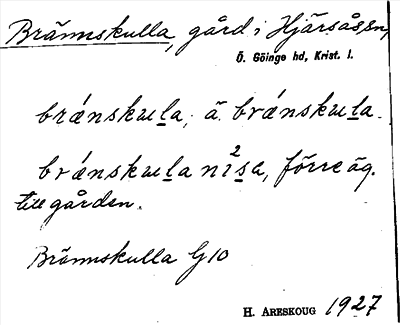 Brännskulla, gård i Hjärsås sn,
Ö. Göinge hd, Krist. l.
brǽnskula, ä. bránskula.
bránskula nisa, förre äg.
2
till gården.
Brännskulla G10
H. ARESKOUG 1927